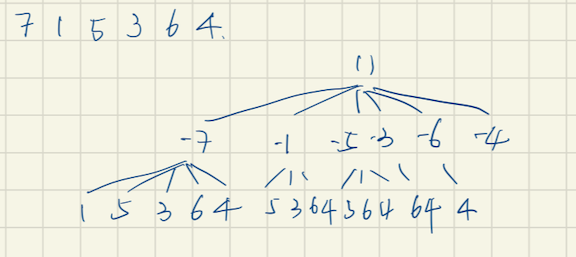 7 1 5 3 6 4.
()
-7 -1 -5 -3 -6 -4
1 5 3 6 4 5 3 6 4 3 6 4 6 4 4